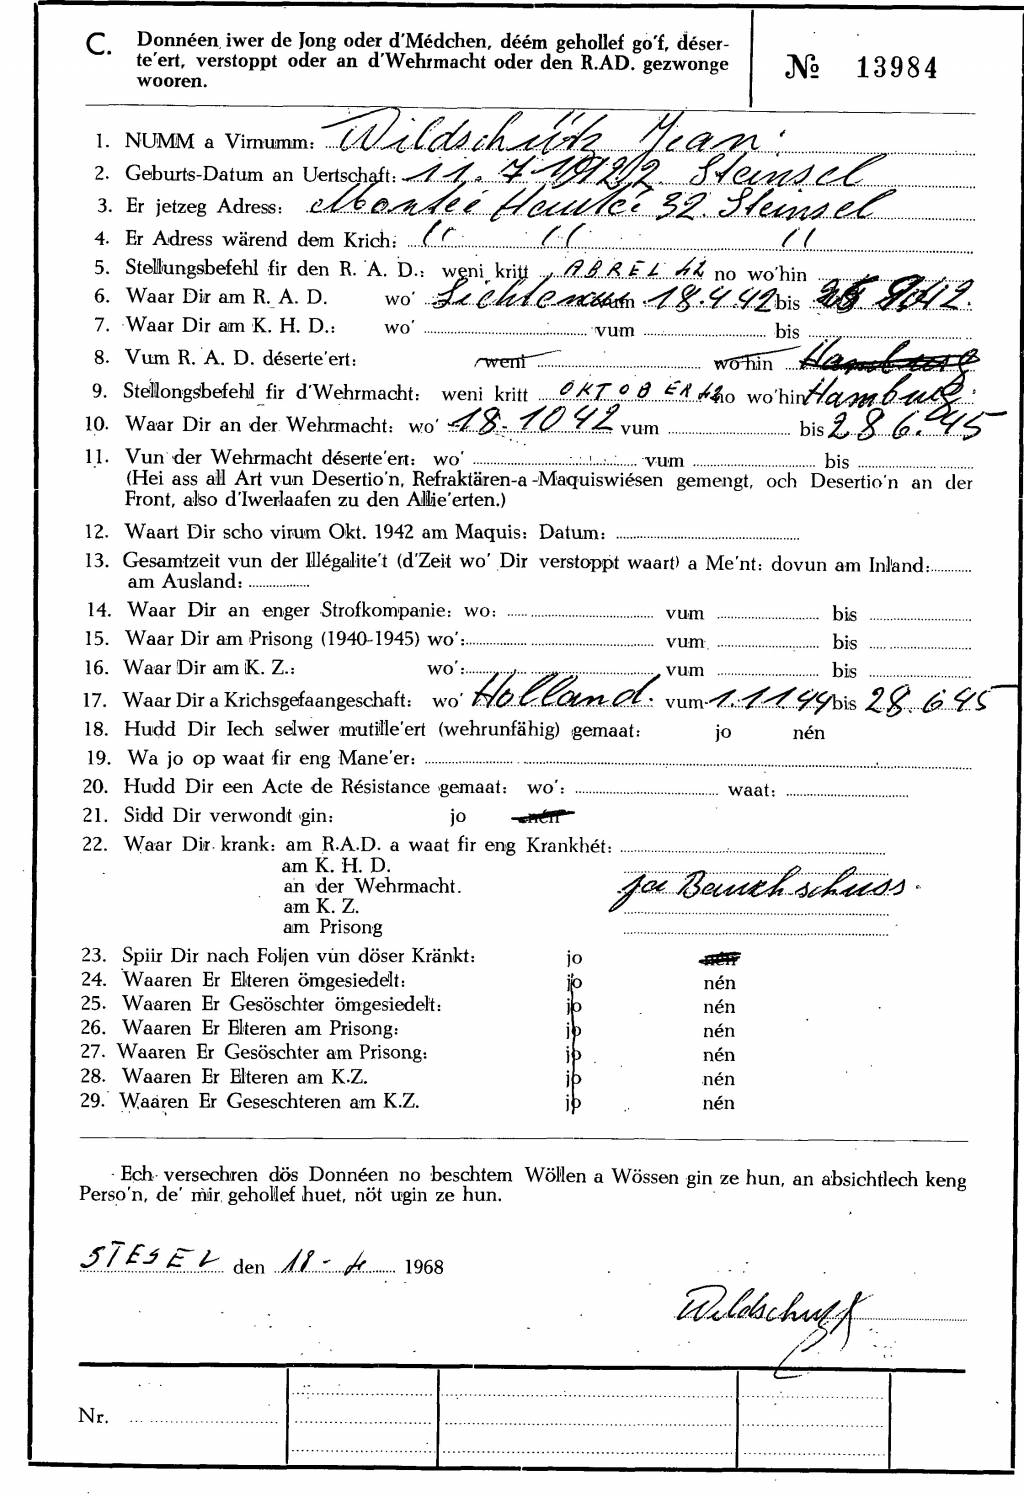 C. Donnéen iwer de Jong oder d'Médchen, déém gehollef go'f, déser-
te'ert, verstoppt oder an d'Wehrmacht oder den R.AD. gezwonge
wooren.
№ 13984
1. NUMM a Virnumm: Wildschütz Jean
2. Geburts-Datum an Uertschaft: 11. 7 1922 Steinsel
3. Er jetzeg Adress: Montée Haute 32. Steinsel
4. Er Adress wärend dem Krich: " " "
5. Stellungsbefehl fir den R. A. D.: weni kritt ABREL 42 no wo'hin
6. Waar Dir am R. A. D. wo' vum 18.4 42 bis 9.42.
7. Waar Dir am K. H. D.: wo' vum bis
8. Vum R. A. D. déserte'ert: weni wohin Hamburg
9. Stellongsbefehl fir d'Wehrmacht: weni kritt OKTOBER 42 no wo'hin Hamburg.
10. Waar Dir an der Wehrmacht: wo' 18-10 42 vum bis 28 6. 45
11. Vun der Wehrmacht déserte'ert: wo' vum bis
(Hei ass all Art vun Desertio'n, Refraktären-a-Maquiswiésen gemengt, och Desertio'n an der
Front, also d'Iwerlaafen zu den Allie'erten.)
12. Waart Dir scho virum Okt. 1942 am Maquis: Datum:
13. Gesamtzeit vun der Illégalite't (d'Zeit wo' Dir verstoppt waart) a Me'nt: dovun am Inland:
am Ausland:
14. Waar Dir an enger Strofkompanie: wo: vum bis
15. Waar Dir am Prisong (1940-1945) wo': vum bis
16. Waar Dir am K. Z.: wo': vum bis
17. Waar Dir a Krichsgefaangeschaft: wo' Holland. vum 1.11 44 bis 28.6 45
18. Hudd Dir Iech selwer mutille'ert (wehrunfähig) gemaat: jo nén
19. Wa jo op waat fir eng Mane'er:
20. Hudd Dir een Acte de Résistance gemaat: wo': waat:
21. Sidd Dir verwondt gin: jo nén
22. Waar Dir krank: am R.A.D. a waat fir eng Krankhét:
am K. H. D.
an der Wehrmacht. ja Bauchschuss.
am K. Z.
am Prisong
23. Spiir Dir nach Foljen vun döser Kränkt: jo nén
24. Waaren Er Elteren ömgesiedelt: jo nén
25. Waaren Er Gesöschter ömgesiedelt: jo nén
26. Waaren Er Elteren am Prisong: jo nén
27. Waaren Er Gesöschter am Prisong: jo nén
28. Waaren Er Elteren am K.Z. jo nén
29. Waaren Er Geseschteren am K.Z. jo nén
Ech versechren dös Donnéen no beschtem Wöllen a Wössen gin ze hun, an absichtlech keng
Perso'n, de' mir gehollef huet, nöt ugin ze hun.
STESEL den 18-4 1968
Wildschutz
Nr.